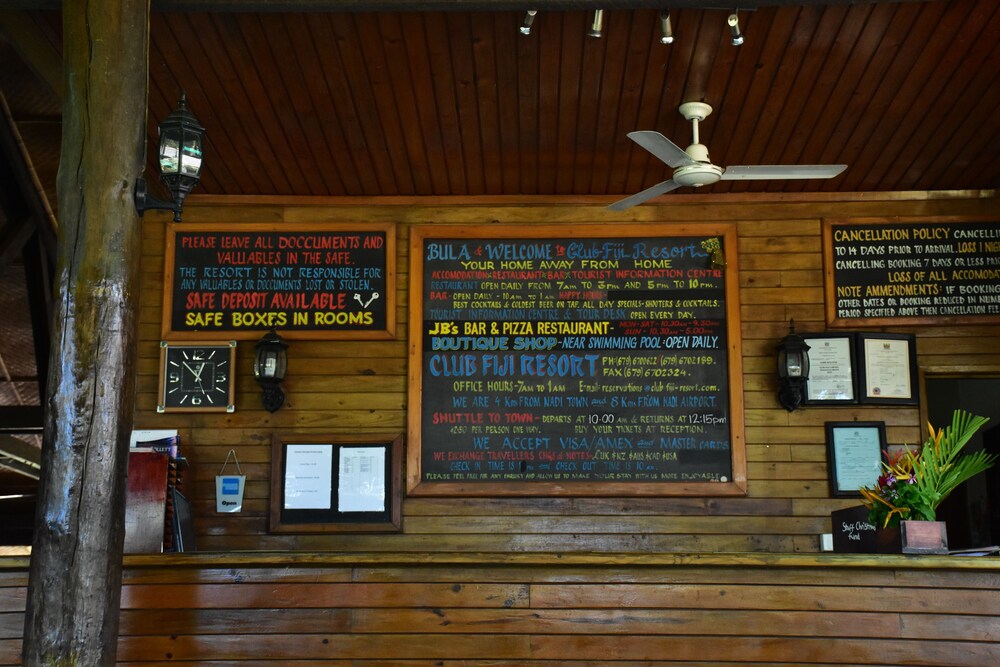 PLEASE LEAVE ALL DOCCUMENTS AND
VALUABLES IN THE SAFE.
THE RESORT IS NOT RESPONSIBLE FOR
ANY VALUABLES OR DOCUMENTS LOST OR STOLEN.
SAFE DEPOSIT AVAILABLE
SAFE BOXES IN ROOMS
BULA & WELCOME to Club Fiji Resort
YOUR HOME AWAY FROM HOME
ACCOMODATION RESTAURANT BAR TOURIST INFORMATION CENTRE
RESTAURANT OPEN DAILY FROM 7AM TO 3PM AND 5PM TO 10PM.
BAR - OPEN DAILY - 10AM to 1AM HAPPY HOUR -
BEST COCKTAILS & COLDEST BEER ON TAP, ALL DAY SPECIALS - SHOOTERS & COCKTAILS.
TOURIST INFORMATION CENTRE & TOUR DESK OPEN EVERY DAY.
JB's BAR & PIZZA RESTAURANT - MON-SAT - 10.30AM - 9.30PM
SUN - 10.30AM - 5.00PM
BOUTIQUE SHOP - NEAR SWIMMING POOL - OPEN DAILY.
CLUB FIJI RESORT PH (679) 6702189.
FAX (679) 6702324.
OFFICE HOURS - 7AM to 1AM Email: reservations@club fiji-resort.com.
WE ARE 4 Km FROM NADI TOWN and 8 Km FROM NADI AIRPORT.
SHUTTLE TO TOWN - DEPARTS AT 10:00 AM & RETURNS AT 12:15pm
PER PERSON ONE WAY. BUY YOUR TICKETS AT RECEPTION.
WE ACCEPT VISA/AMEX and MASTER CARDS
WE EXCHANGE TRAVELLERS CHQS & NOTES
CHECK IN TIME IS CHECK OUT TIME IS 10AM.
PLEASE FEEL FREE FOR ANY ENQUIRY AND ALLOW US TO MAKE YOUR STAY WITH US MORE ENJOYABLE
CANCELLATION POLICY CANCELLI
TO 14 DAYS PRIOR TO ARRIVAL. LOSS 1 NI
CANCELLING BOOKING 7 DAYS OR LESS PRI
LOSS OF ALL ACCOMODA
NOTE AMMENDMENTS: IF BOOKING
OTHER DATES OR BOOKING REDUCED IN NUMB
PERIOD SPECIFIED ABOVE THEN CANCELLATION FE
Open
Staff Christmas
fund